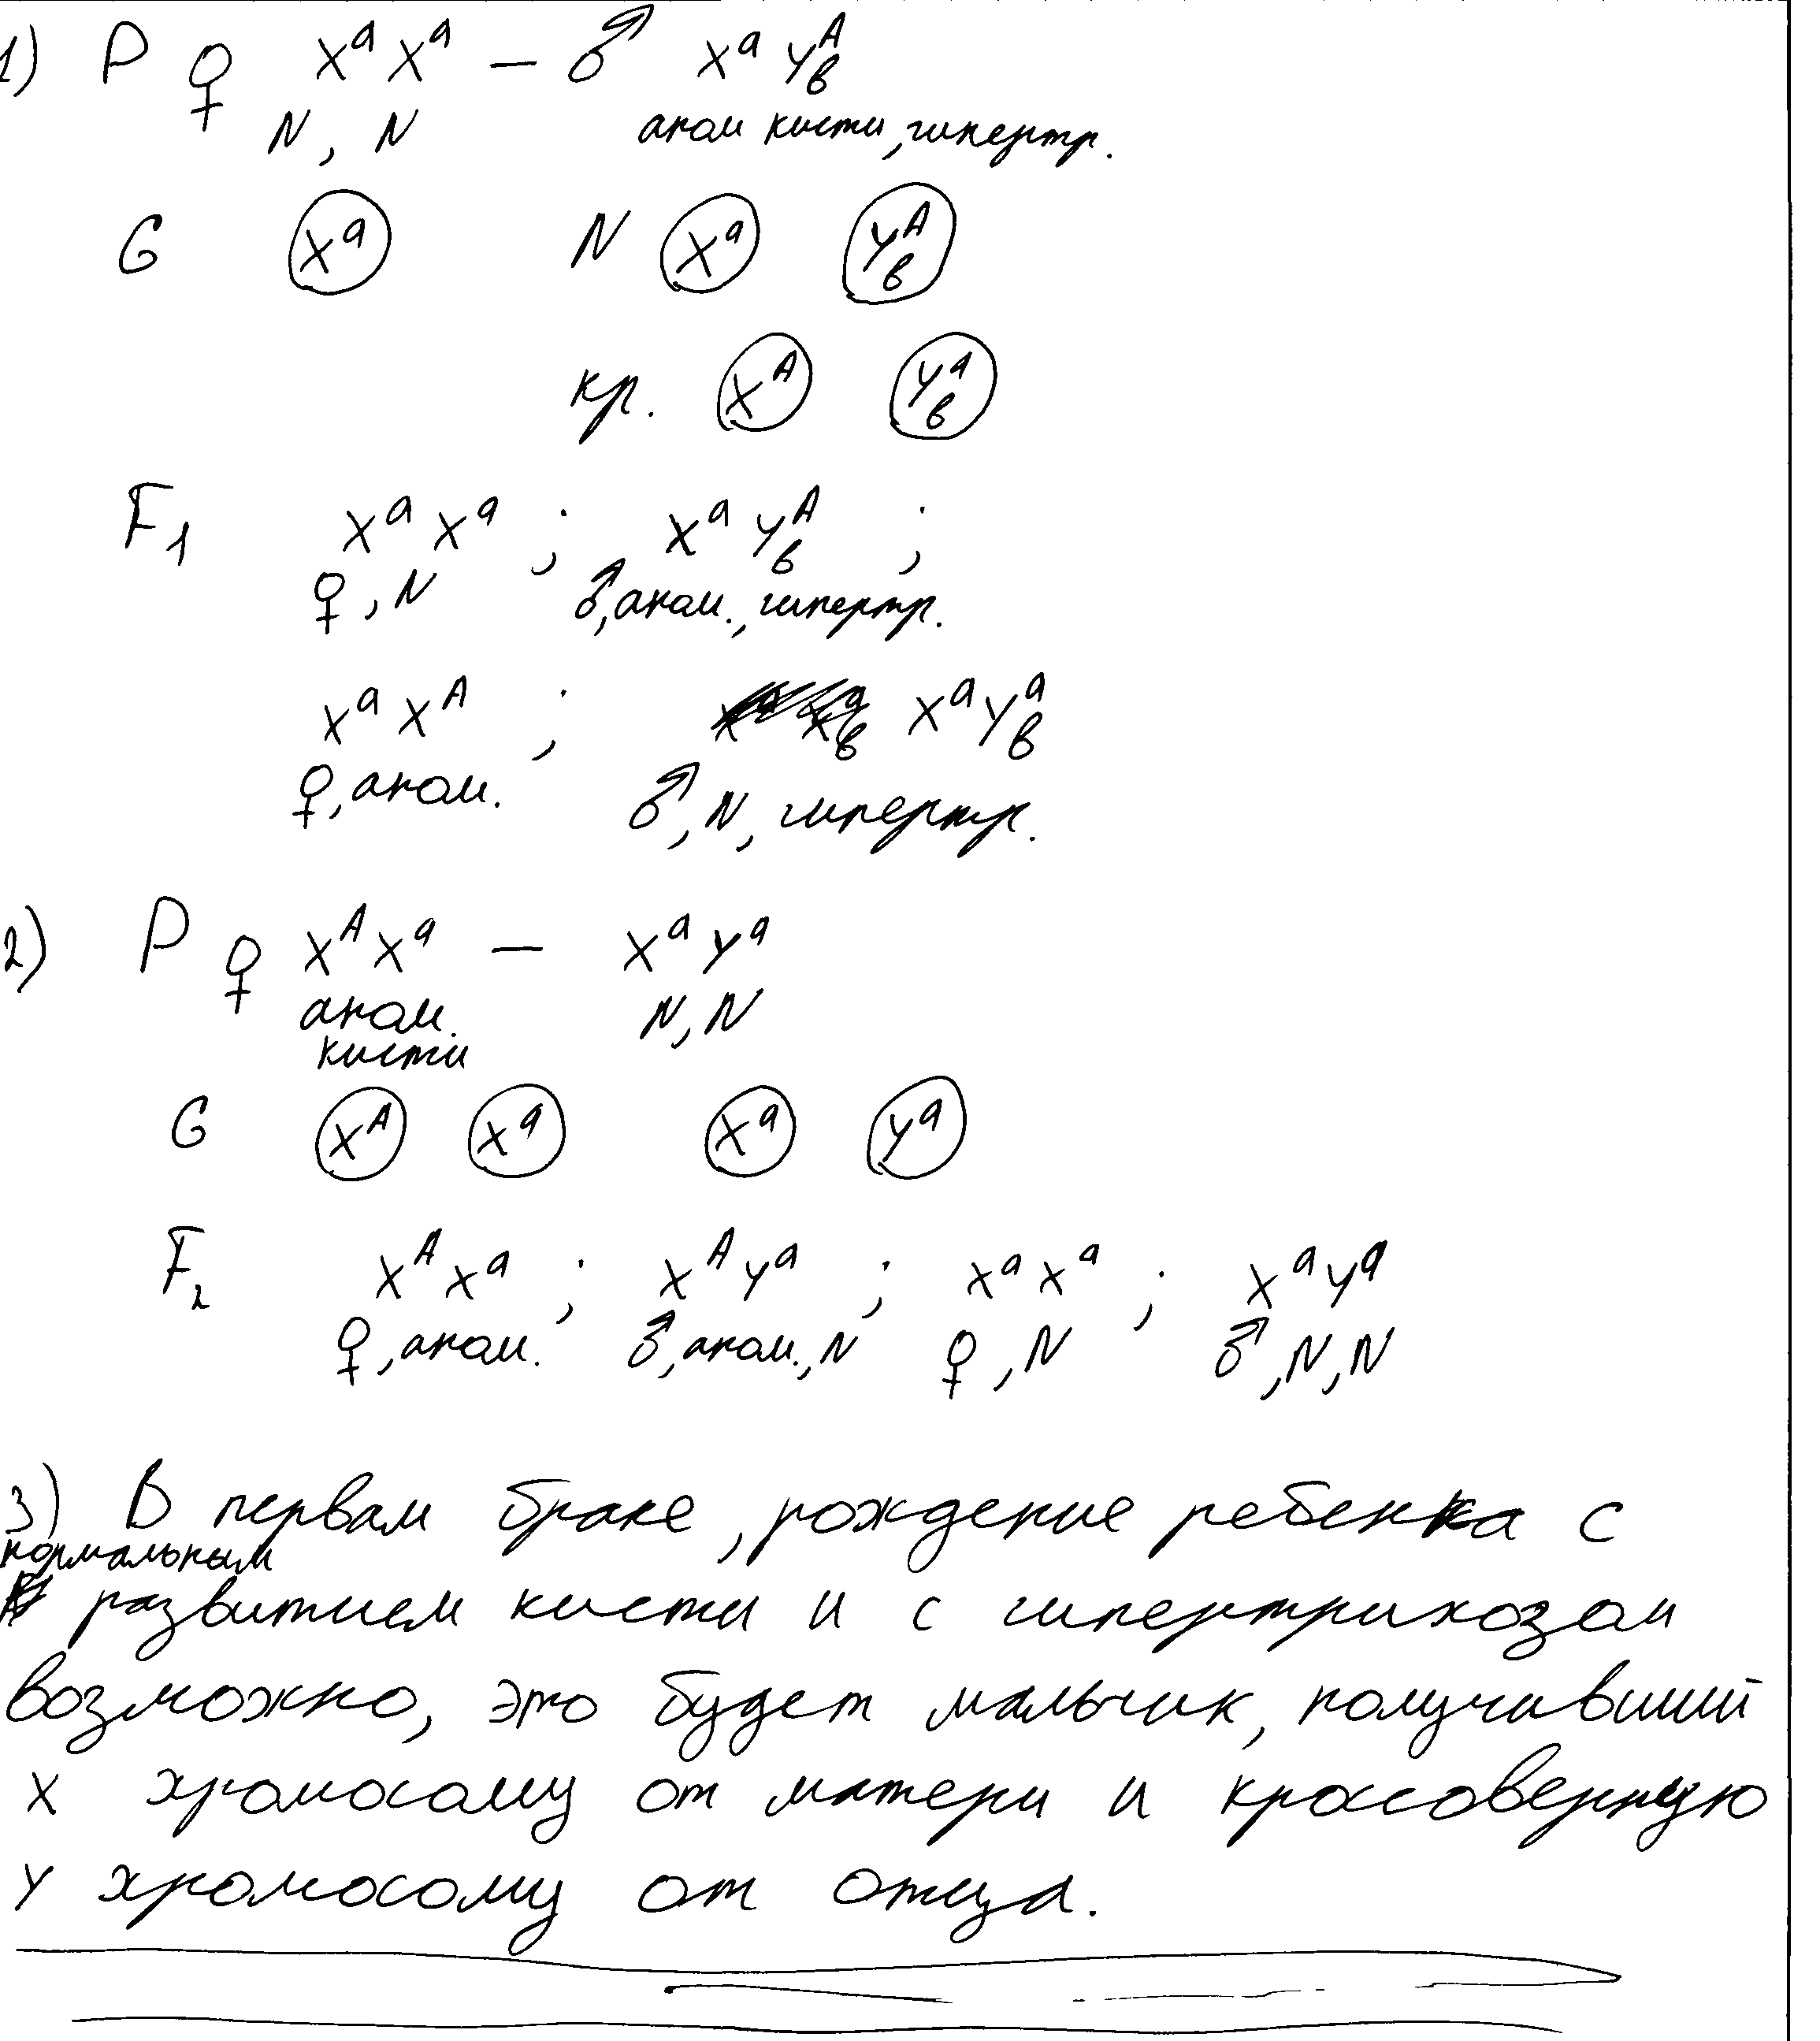 1) P ♀ Xᵃ Xᵃ — ♂ Xᵃ Yᴬв
N, N аном кисти, гипертр.
G Xᵃ N Xᵃ Yᴬв
кр. Xᴬ Yᵃв
F₁ Xᵃ Xᵃ ; Xᵃ Yᴬв ;
♀, N ♂, аном., гипертр.
Xᵃ Xᴬ ; Xᵃ Yᵃв
♀, аном. ♂, N, гипертр.
2) P ♀ Xᴬ Xᵃ — Xᵃ Yᵃ
аном. N, N
кисти
G Xᴬ Xᵃ Xᵃ Yᵃ
F₂ Xᴬ Xᵃ ; Xᴬ Yᵃ ; Xᵃ Xᵃ ; Xᵃ Yᵃ
♀, аном. ♂, аном., N ♀, N ♂, N, N
3) В первом браке, рождение ребенка с
нормальным
развитием кисти и с гипертрихозом
возможно, это будет мальчик, получивший
X хромосому от матери и кроссоверную
Y хромосому от отца.